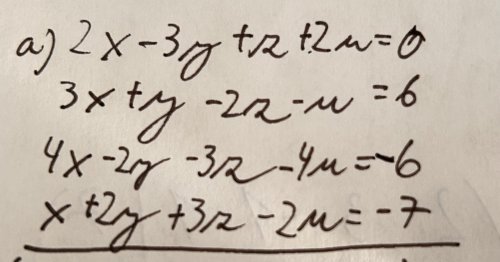 a) 2x - 3y + z + 2u = 0
3x + y - 2z - u = 6
4x - 2y - 3z - 4u = -6
x + 2y + 3z - 2u = -7